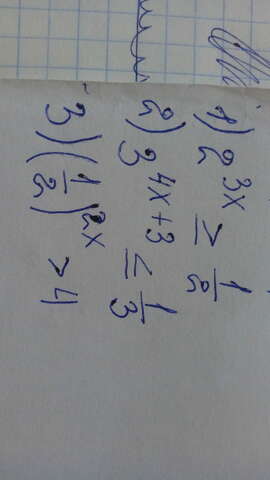 1) 2^{3x} ≥ \frac{1}{2}
2) 3^{4x+3} ≤ \frac{1}{3}
3) (\frac{1}{2})^{2x} > 4